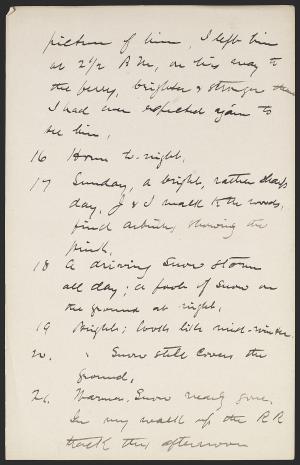 picture of him, I left him
at 2 1/2 P.M., on his way to
the ferry, brighter & stronger than
I had ever expected again to
see him,
16 Home to-night.
17 Sunday, a bright, rather sharp
day, J & I walk to the woods,
find arbutus showing the
pink.
18 A driving snow storm
all day; a foot of snow on
the ground at night.
19 Bright; looks like mid-winter.
20. " Snow still covers the
ground,
26. Warmer. Snow nearly gone.
In my walk up the R R
track this afternoon